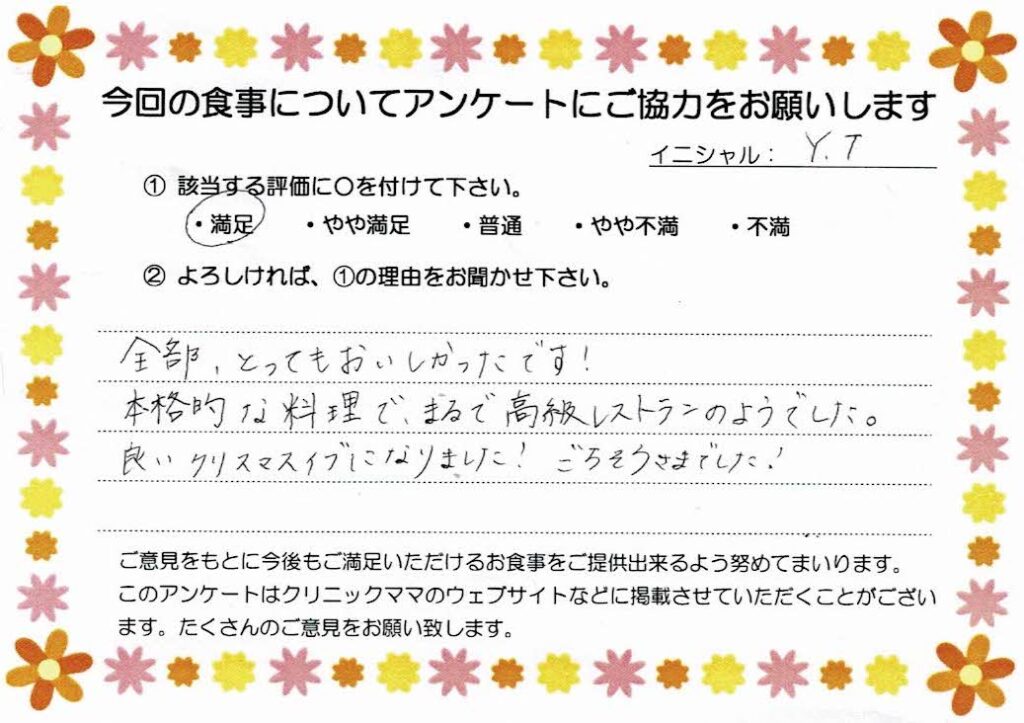 今回の食事についてアンケートにご協力をお願いします
イニシャル： Y.T
① 該当する評価に〇を付けて下さい。
・満足 ・やや満足 ・普通 ・やや不満 ・不満
② よろしければ、①の理由をお聞かせ下さい。
全部、とってもおいしかったです！
本格的な料理で、まるで高級レストランのようでした。
良いクリスマスイブになりました！ ごちそうさまでした！
ご意見をもとに今後もご満足いただけるお食事をご提供出来るよう努めてまいります。
このアンケートはクリニックママのウェブサイトなどに掲載させていただくことがござい
ます。たくさんのご意見をお願い致します。